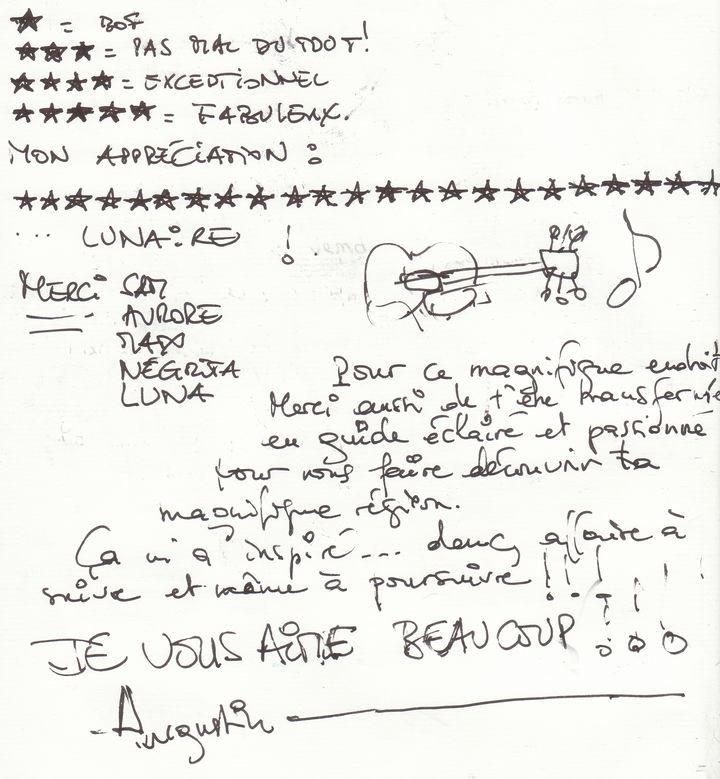 ★ = BOF
★★★ = PAS MAL DU TOUT!
★★★★ = EXCEPTIONNEL
★★★★★ = FABULEUX.
MON APPRÉCIATION :
★★★★★★★★★★★★★★★★★★★★★★★★
... LUNAIRE !
MERCI SAM
AURORE
MAX
NÉGRITA
LUNA
Pour ce magnifique endroit
Merci aussi de t'être transformée
en guide éclairé et passionné
pour nous faire découvrir ta
magnifique région.
Ça m'a inspiré... donc, affaire à
suivre et même à poursuivre !!!!!
JE VOUS AIME BEAUCOUP !!!
- Augustin